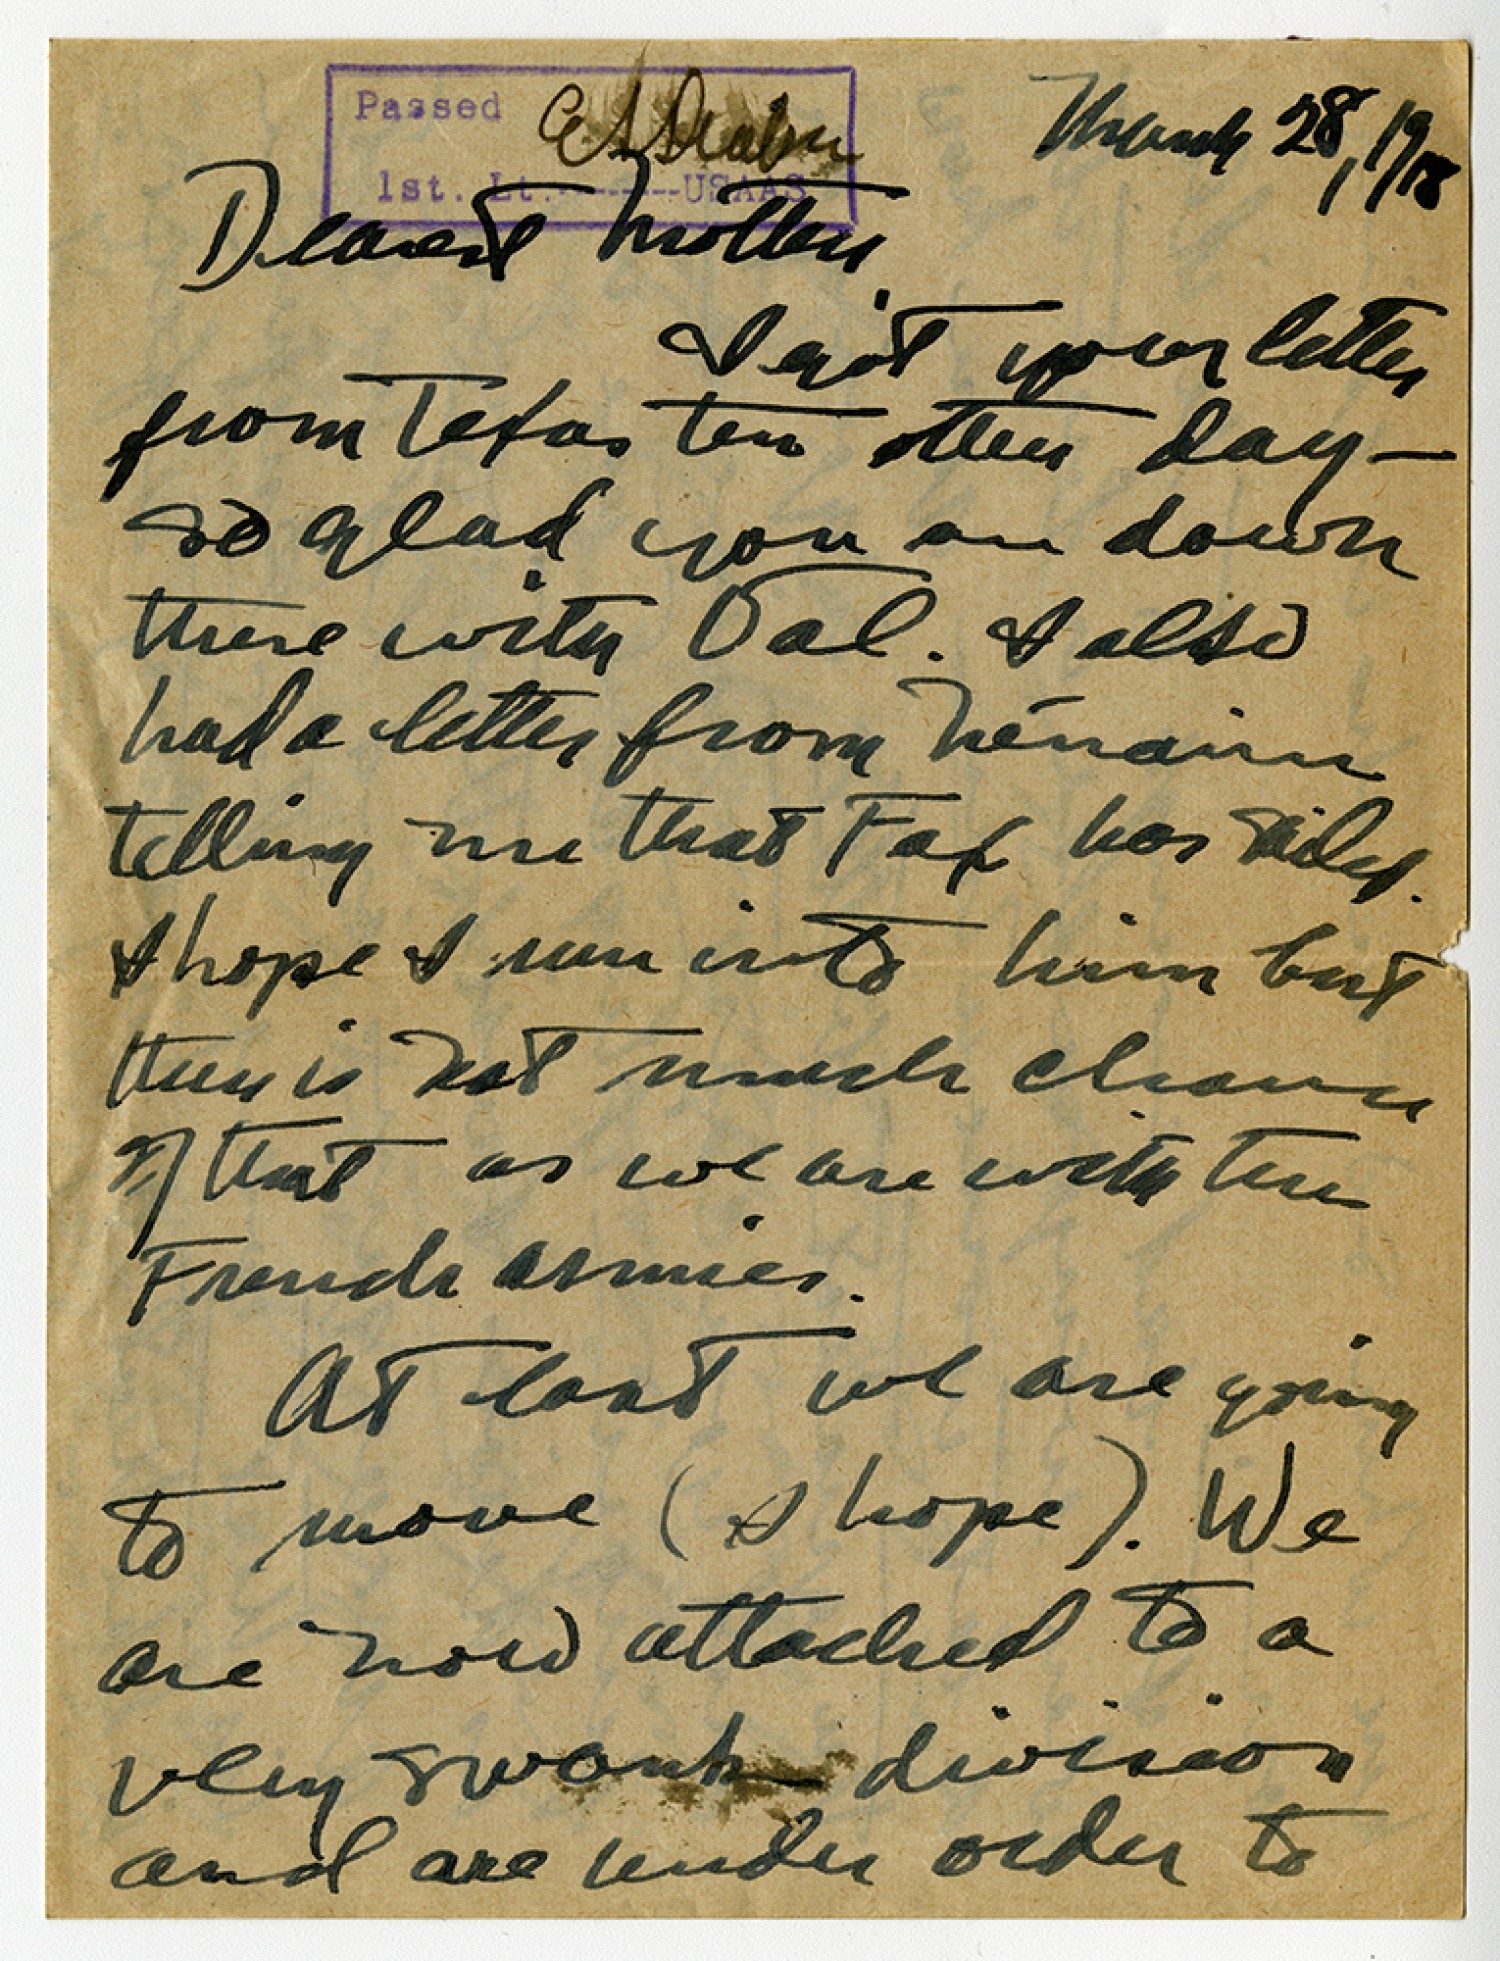 Passed
1st. Lt. --------USAAS
March 28, 1918
Dearest Mother
I got your letter
from Texas the other day—
so glad you are down
there with Val. I also
had a letter from
telling me that Fax has sailed.
I hope I run into him but
there is not much chance
of that as we are with the
French armies.
At last we are going
to move (I hope). We
are now attached to a
very swank division
and are under order to